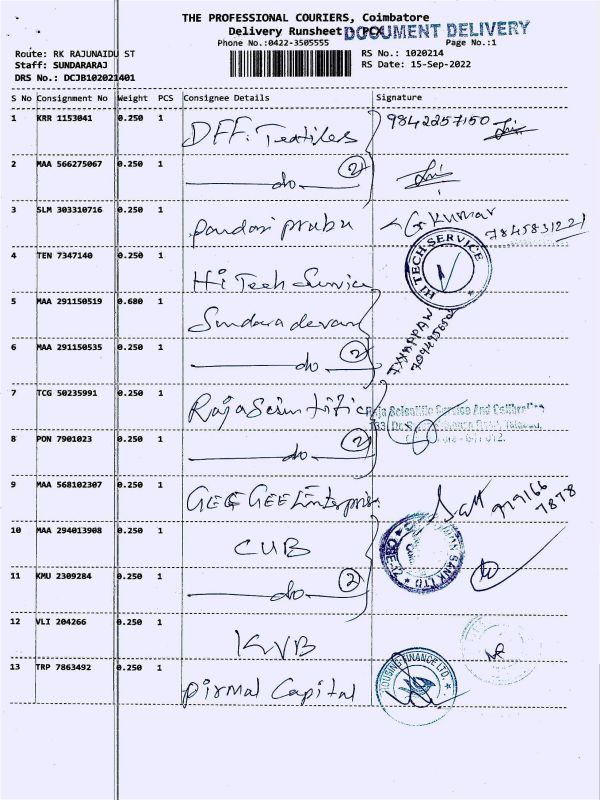 THE PROFESSIONAL COURIERS, Coimbatore
Delivery Runsheet PCX
DOCUMENT DELIVERY
Phone No.:0422-3505555
Page No.:1
Route: RK RAJUNAIDU ST
Staff: SUNDARARAJ
DRS No.: DCJB102021401
RS No.: 1020214
RS Date: 15-Sep-2022
S No Consignment No Weight PCS Consignee Details Signature
1 KRR 1153041 0.250 1 DFF. Textiles 9842257150
2 MAA 566275067 0.250 1 do 2
3 SLM 303310716 0.250 1 Pandari prabu G Kumar
7845831221
4 TEN 7347140 0.250 1 Hi Tech Service HI TECH SERVICE
5 MAA 291150519 0.680 1 Sundara devan
6 MAA 291150535 0.250 1 do 2 IYYAPPAN
7 TCG 50235991 0.250 1 Raja Scientific Raja Scientific Service And
8 PON 7901023 0.250 1 do 2
9 MAA 568102307 0.250 1 GEE GEE Enterprise 979166
7878
10 MAA 294013908 0.250 1 CUB BANK LTD
11 KMU 2309284 0.250 1 do 2
12 VLI 204266 0.250 1 KVB
13 TRP 7863492 0.250 1 Pirmal Capital HOUSING FINANCE LTD.